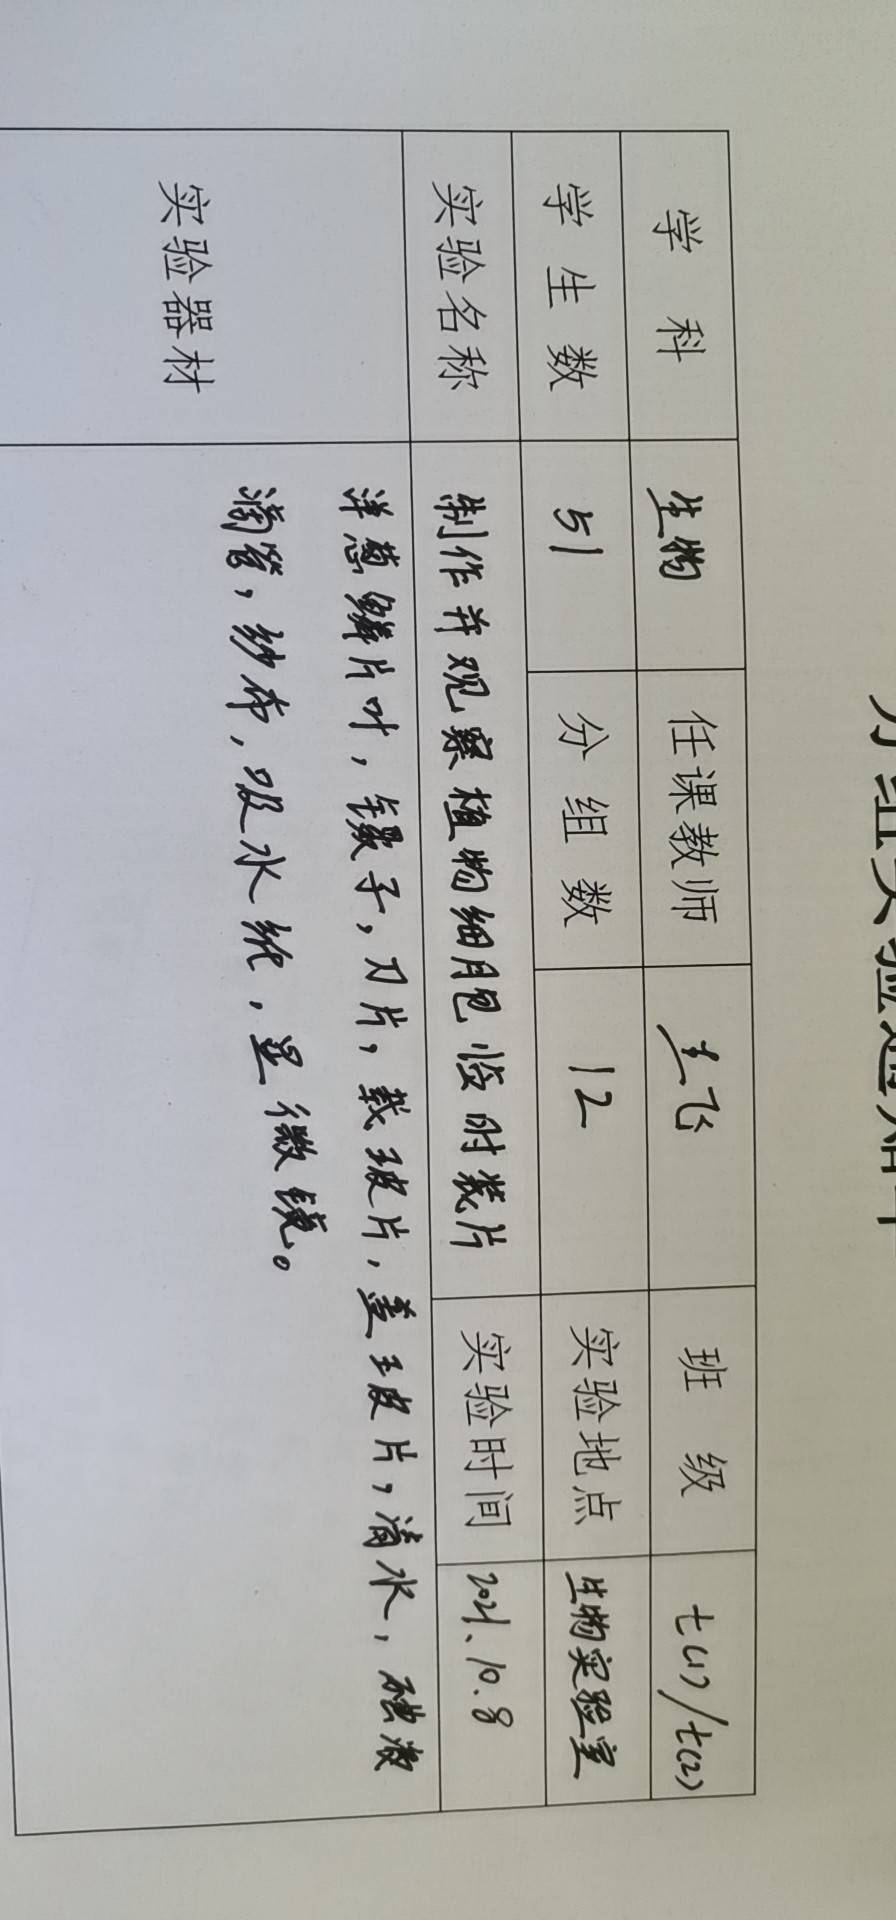 分组实验通知单
学 科 生物 任课教师 王飞 班 级 七(1)/七(2)
学 生 数 51 分 组 数 12 实验地点 生物实验室
实验名称 制作并观察植物细胞临时装片 实验时间 2021、10.8
实验器材 洋葱鳞片叶，镊子，刀片，载玻片，盖玻片，清水，碘液
滴管，纱布，吸水纸，显微镜。